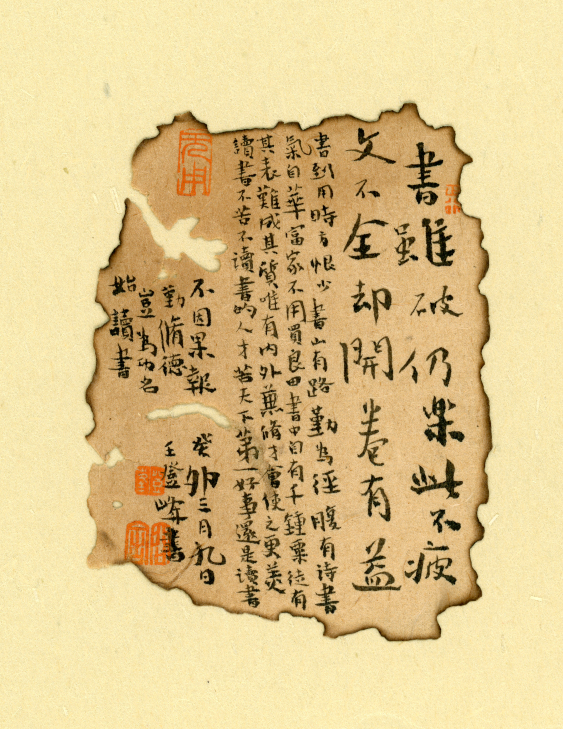 書雖破仍樂此不疲
文不全却開卷有益
書到用時方恨少書山有路勤為徑腹有诗書
氣自華富家不用買良田書中自有千鍾粟徒有
其表難成其質唯有内外兼脩才會使之更美
讀書不苦不讀書的人才苦天下第一好事還是读書
不因果報
勤脩德
豈為功名
始讀書
癸卯三月九日
王登峰書